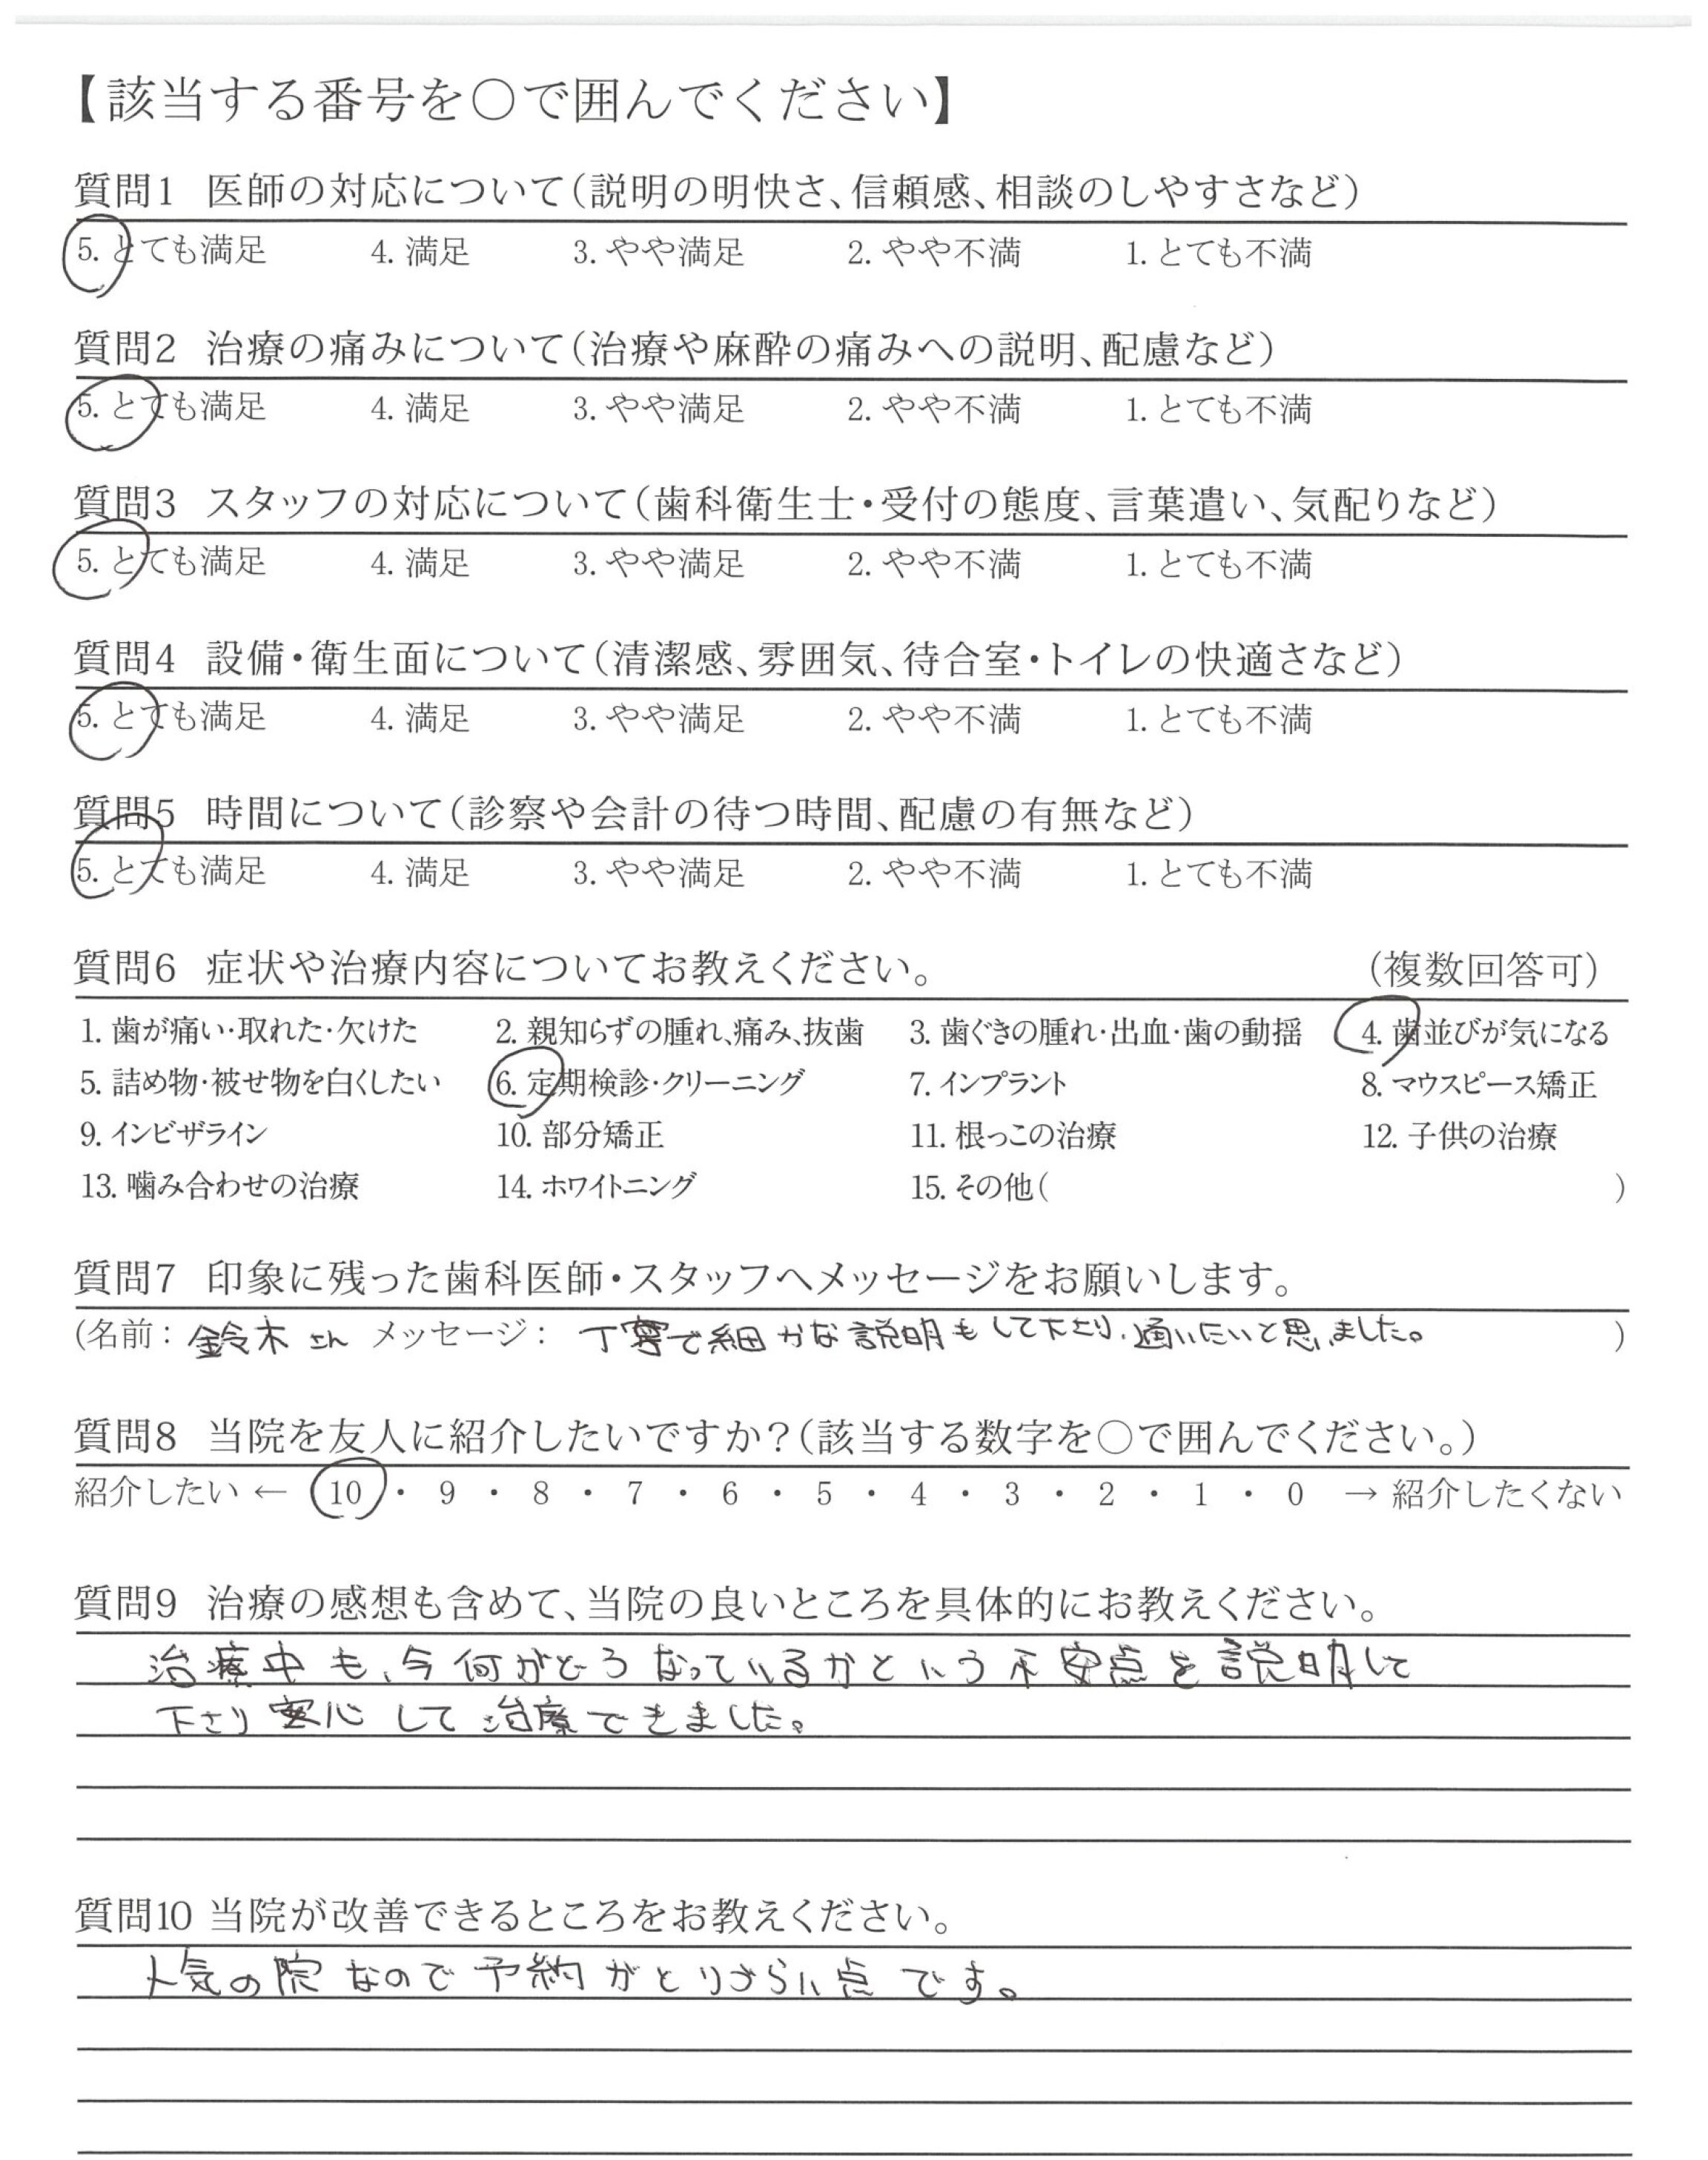 【該当する番号を〇で囲んでください】
質問1 医師の対応について(説明の明快さ、信頼感、相談のしやすさなど)
5. とても満足 4. 満足 3. やや満足 2. やや不満 1. とても不満
質問2 治療の痛みについて(治療や麻酔の痛みへの説明、配慮など)
5. とても満足 4. 満足 3. やや満足 2. やや不満 1. とても不満
質問3 スタッフの対応について(歯科衛生士・受付の態度、言葉遣い、気配りなど)
5. とても満足 4. 満足 3. やや満足 2. やや不満 1. とても不満
質問4 設備・衛生面について(清潔感、雰囲気、待合室・トイレの快適さなど)
5. とても満足 4. 満足 3. やや満足 2. やや不満 1. とても不満
質問5 時間について(診察や会計の待つ時間、配慮の有無など)
5. とても満足 4. 満足 3. やや満足 2. やや不満 1. とても不満
質問6 症状や治療内容についてお教えください。 (複数回答可)
1. 歯が痛い・取れた・欠けた 2. 親知らずの腫れ、痛み、抜歯 3. 歯ぐきの腫れ・出血・歯の動揺 4. 歯並びが気になる
5. 詰め物・被せ物を白くしたい 6. 定期検診・クリーニング 7. インプラント 8. マウスピース矯正
9. インビザライン 10. 部分矯正 11. 根っこの治療 12. 子供の治療
13. 噛み合わせの治療 14. ホワイトニング 15. その他( )
質問7 印象に残った歯科医師・スタッフへメッセージをお願いします。
(名前: 鈴木さん メッセージ: 丁寧で細かな説明もして下さり、通いたいと思いました。 )
質問8 当院を友人に紹介したいですか?(該当する数字を〇で囲んでください。)
紹介したい ← 10 ・ 9 ・ 8 ・ 7 ・ 6 ・ 5 ・ 4 ・ 3 ・ 2 ・ 1 ・ 0 → 紹介したくない
質問9 治療の感想も含めて、当院の良いところを具体的にお教えください。
治療中も、今何がどうなっているかという不安点を説明して
下さり安心して治療できました。
質問10 当院が改善できるところをお教えください。
人気の院なので予約がとりずらい点です。